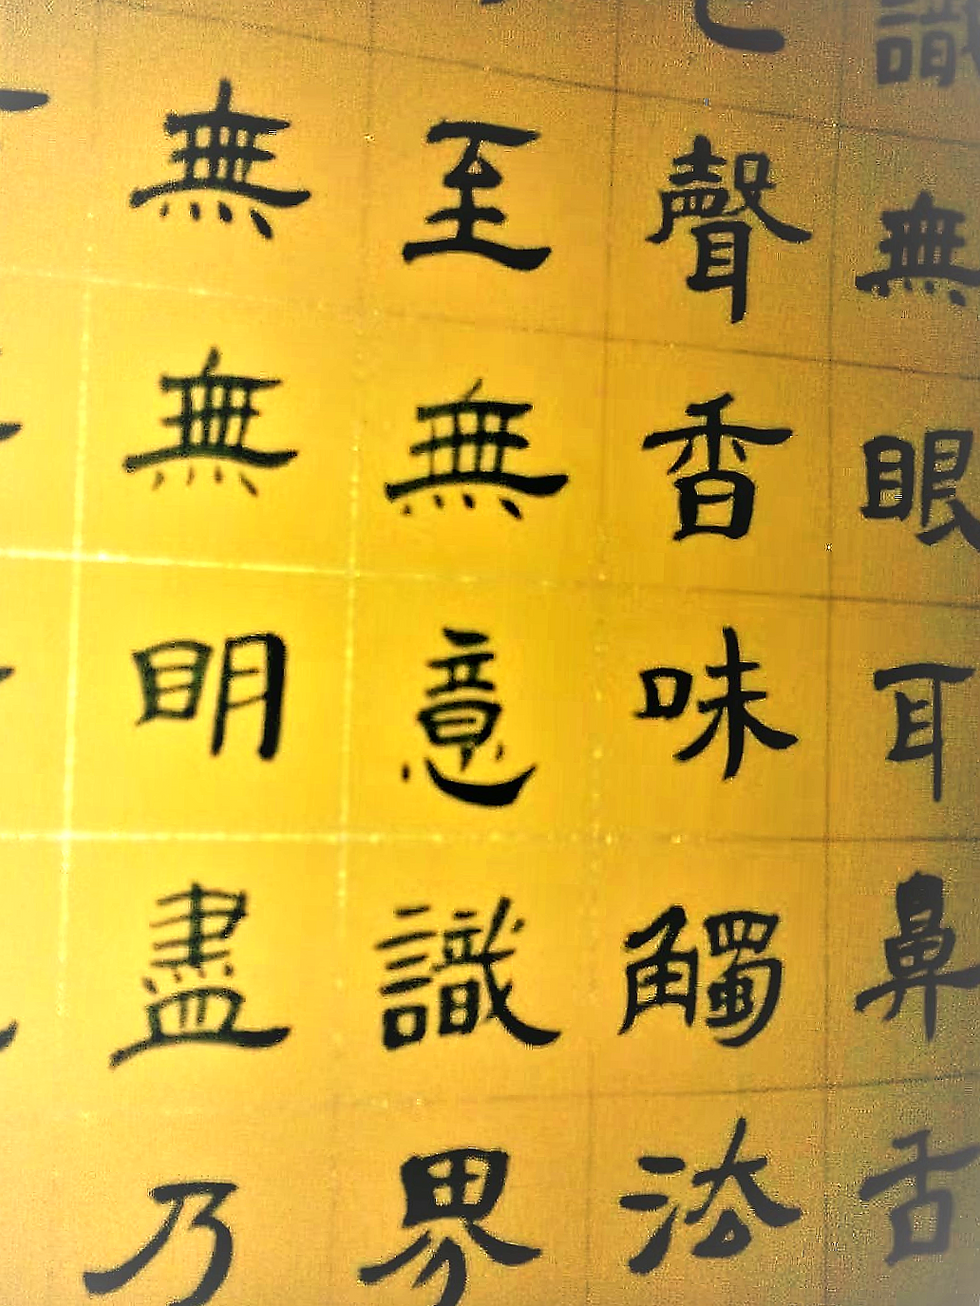 識無眼耳鼻舌
聲香味觸法
至無意識界
無無明盡乃